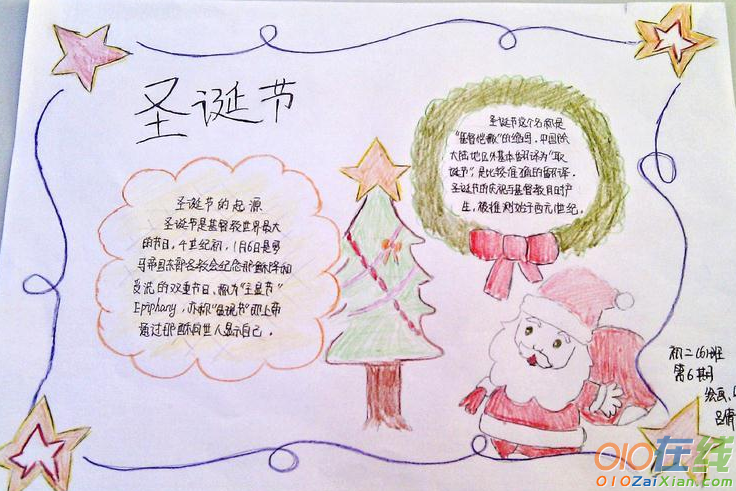 圣诞节
圣诞节的起源
圣诞节是基督教世界最大
的节日。4世纪初,1月6日是罗
马帝国东部各教会纪念耶稣降和
受洗的双重节日、称为"主显节"
Epiphany,亦称"显现节"即上帝
通过耶稣向世人显示自己。
圣诞节这个名称是
"基督弥撒"的缩写。中国除
大陆地区外基本翻译为"耶
诞节",是比较准确的翻译。
圣诞节的庆祝与基督教同时产
生,被推测始于西元1世纪。
初二(6)班
第6期
绘画:
010在线
010ZaiXian.com